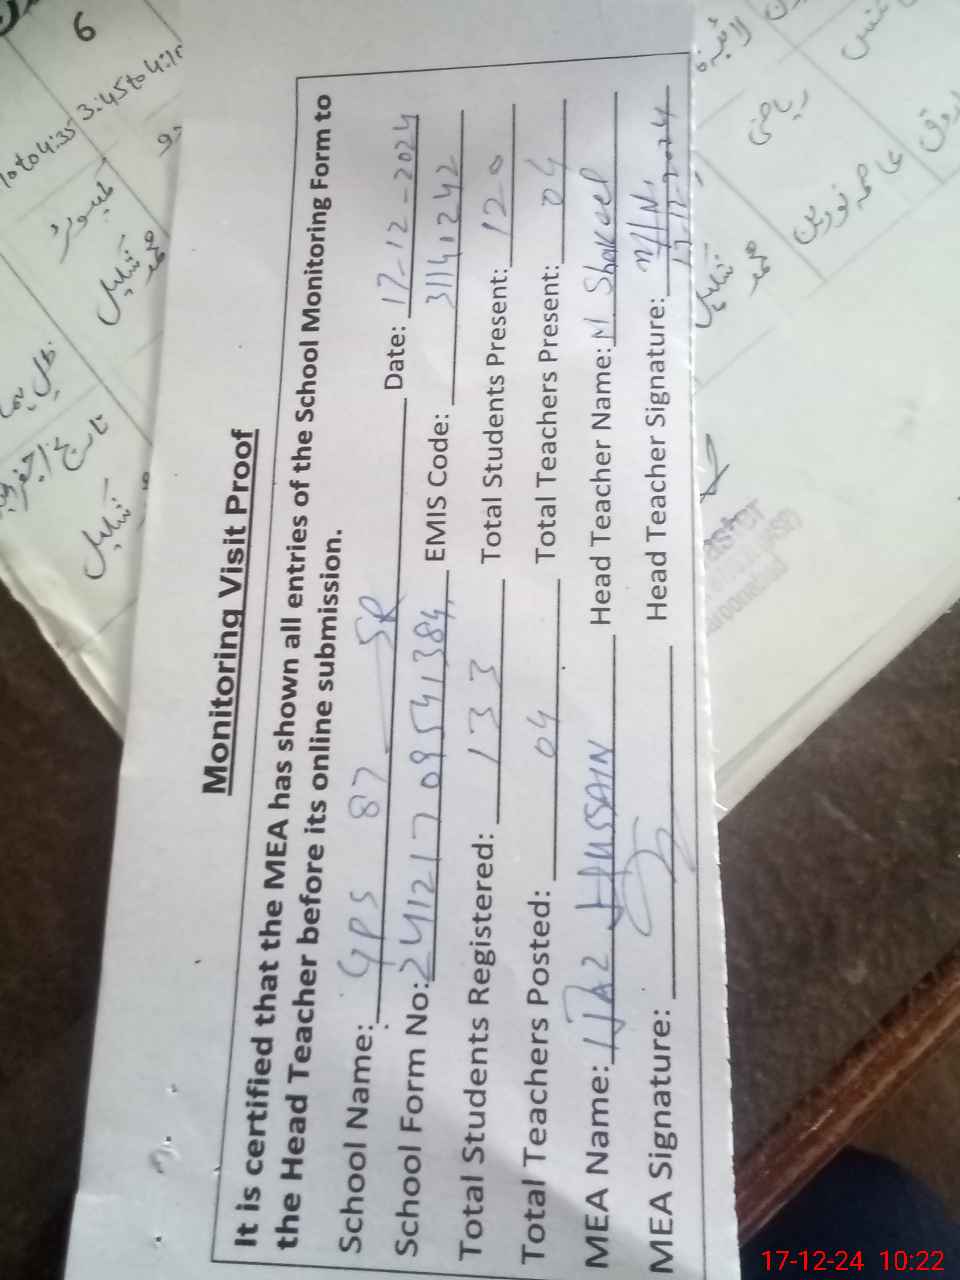 Monitoring Visit Proof
It is certified that the MEA has shown all entries of the School Monitoring Form to
the Head Teacher before its online submission.
School Name: GPS 87 SR Date: 17-12-2024
School Form No: 24121709541384, EMIS Code: 31141242
Total Students Registered: 133 Total Students Present: 120
Total Teachers Posted: 04 Total Teachers Present: 04
MEA Name: IJAZ HUSSAIN Head Teacher Name: M Shakeel
MEA Signature: Head Teacher Signature:
17-12-2024
6
3:45 to 4:1
10 to 4:35
محمد شکیل
شکیل
ریاضی
عاصمہ نورین
محمد شکیل
17-12-24 10:22